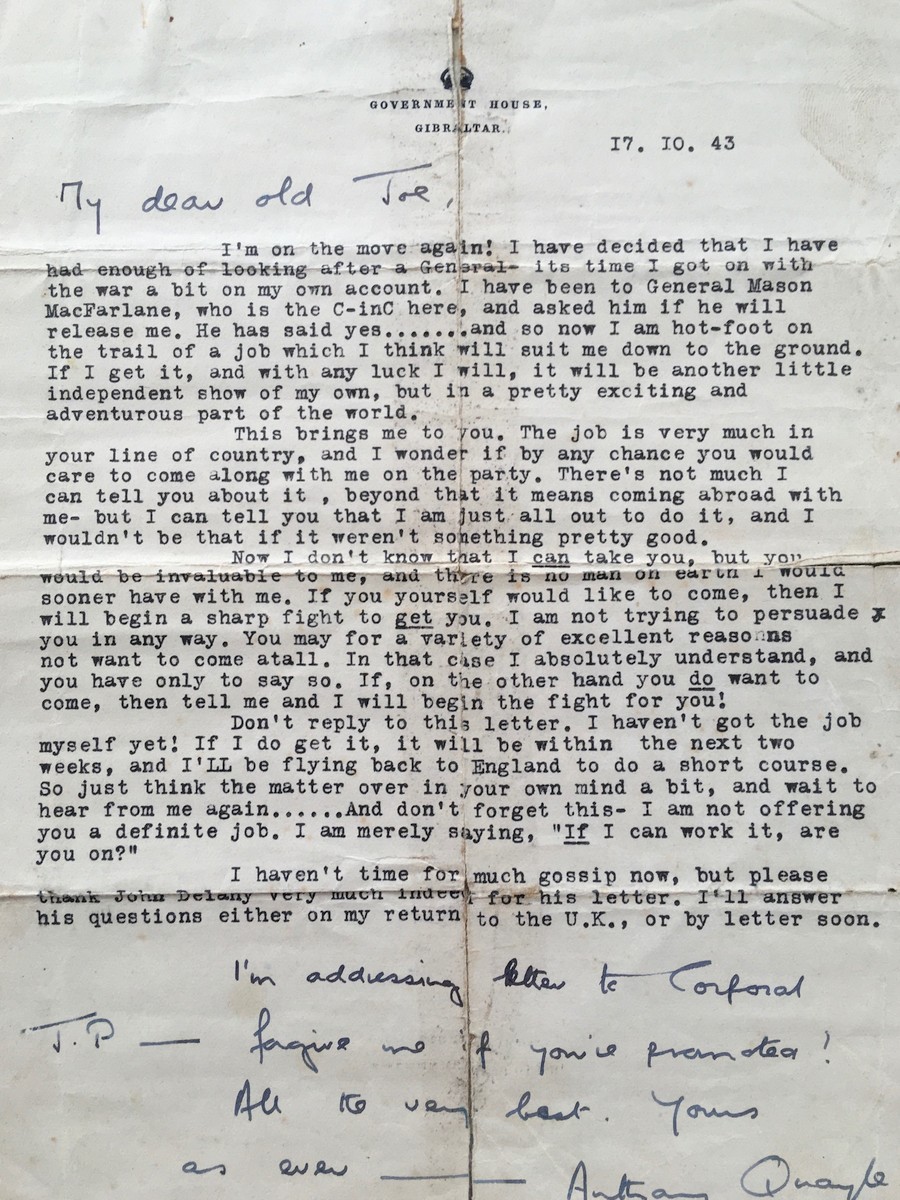 GOVERNMENT HOUSE,
GIBRALTAR.
17. 10. 43
My dear old Joe,
I'm on the move again! I have decided that I have
had enough of looking after a General- its time I got on with
the war a bit on my own account. I have been to General Mason
MacFarlane, who is the C-inC here, and asked him if he will
release me. He has said yes.......and so now I am hot-foot on
the trail of a job which I think will suit me down to the ground.
If I get it, and with any luck I will, it will be another little
independent show of my own, but in a pretty exciting and
adventurous part of the world.
This brings me to you. The job is very much in
your line of country, and I wonder if by any chance you would
care to come along with me on the party. There's not much I
can tell you about it , beyond that it means coming abroad with
me- but I can tell you that I am just all out to do it, and I
wouldn't be that if it weren't something pretty good.
Now I don't know that I can take you, but you
would be invaluable to me, and there is no man on earth I would
sooner have with me. If you yourself would like to come, then I
will begin a sharp fight to get you. I am not trying to persuade x
you in any way. You may for a variety of excellent reasonns
not want to come atall. In that case I absolutely understand, and
you have only to say so. If, on the other hand you do want to
come, then tell me and I will begin the fight for you!
Don't reply to this letter. I haven't got the job
myself yet! If I do get it, it will be within the next two
weeks, and I'LL be flying back to England to do a short course.
So just think the matter over in your own mind a bit, and wait to
hear from me again......And don't forget this- I am not offering
you a definite job. I am merely saying, "If I can work it, are
you on?"
I haven't time for much gossip now, but please
thank John Delany very much indeed for his letter. I'll answer
his questions either on my return to the U.K., or by letter soon.
I'm addressing letter to Corporal
J.P — forgive me if you're promoted!
All the very best. Yours
as ever — Anthony Quayle